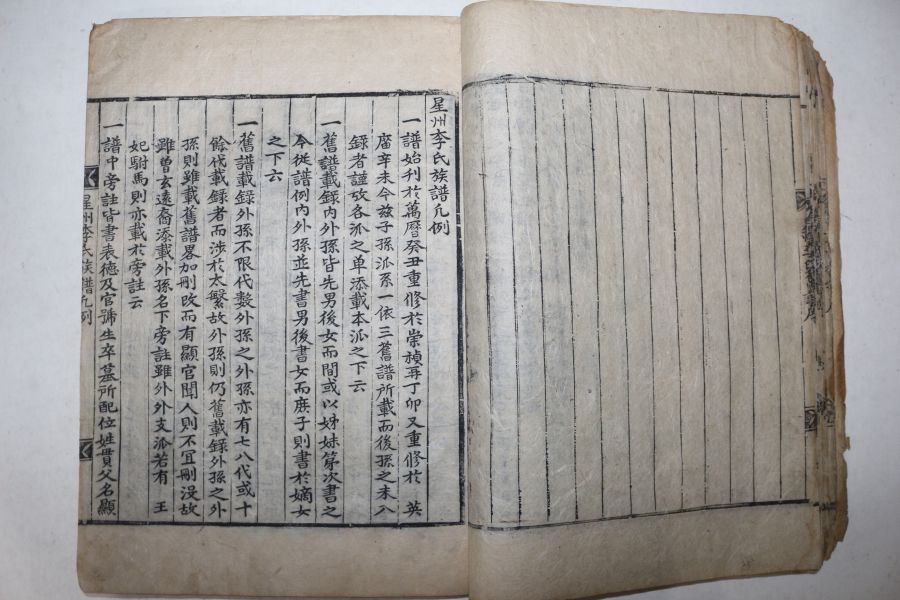 星州李氏族譜凡例
一譜始刊於萬曆癸丑重修於崇禎再丁卯又重修於 英
廟辛未今玆子孫派系一依三舊譜所載而後孫之未入
錄者謹攷各派之单添載本派之下云
一舊譜載錄內外孫皆先男後女而間或以姊妹第次書之
今從譜例內外孫並先書男後書女而庶子則書於嫡女
之下云
一舊譜載錄外孫不限代數外孫之外孫亦有七八代或十
餘代載錄者而涉於太繁故外孫則仍舊載錄外孫之外
孫則雖載舊譜畧加刪改而有顯官聞人則不冝刪沒故
雖曾玄遠裔添載外孫名下旁註雖外外支派若有 王
妃駙馬則亦載於旁註云
一譜中旁註皆書表德及官號生卒墓所配位姓貫父名顯
星州李氏族譜凡例